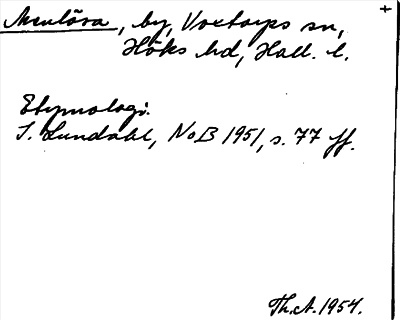 Menlösa, by, Voxtorps sn,
Höks hd, Hall. l.
Etymologi.
I. Lundahl, NoB 1951, s. 77 ff.
Th.A. 1954.